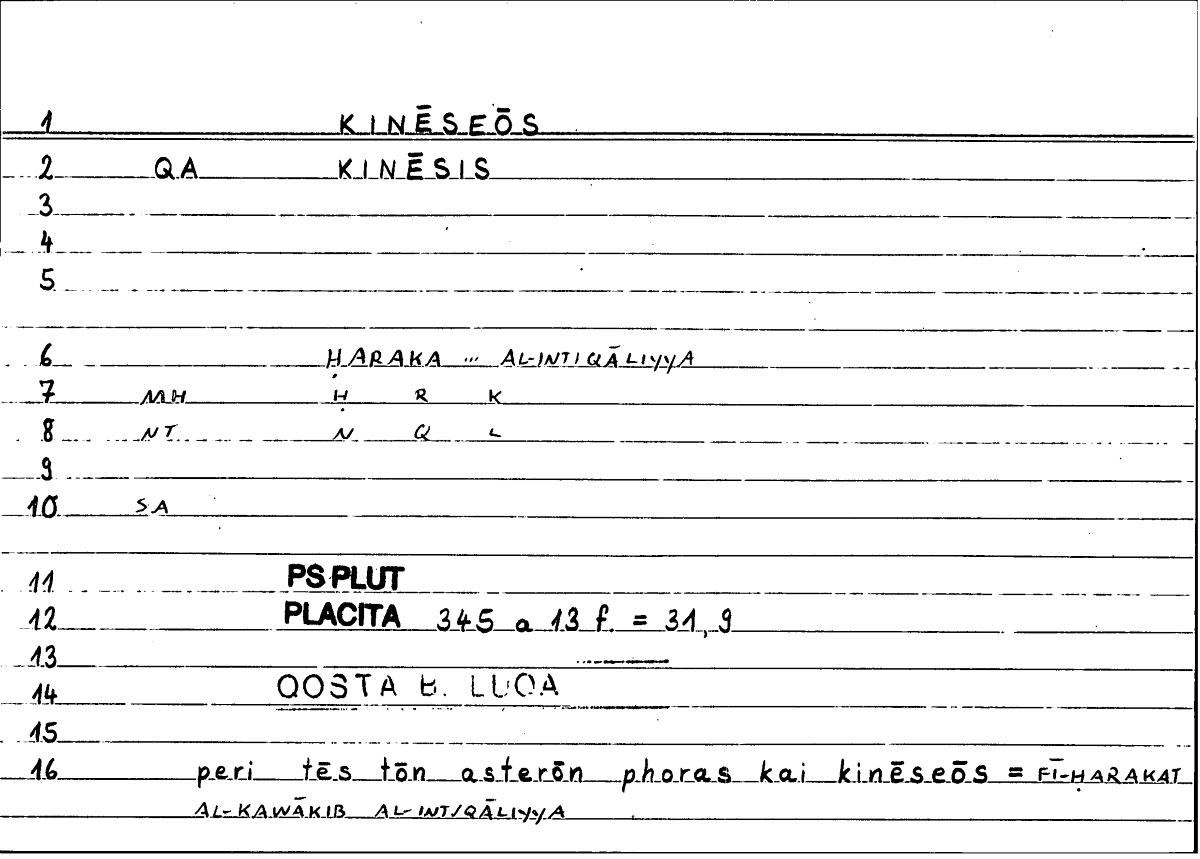 1 KINĒSEŌS
2 QA KINĒSIS
3
4
5
6 ḤARAKA ... AL-INTIQĀLIYYA
7 MH Ḥ R K
8 NT N Q L
9
10 SA
11 PS PLUT
12 PLACITA 345 a 13 f. = 31,9
13
14 QOSTA B. LUQA
15
16 peri tēs tōn asterōn phoras kai kinēseōs = FĪ-ḤARAKAT
AL-KAWĀKIB AL-INTIQĀLIYYA